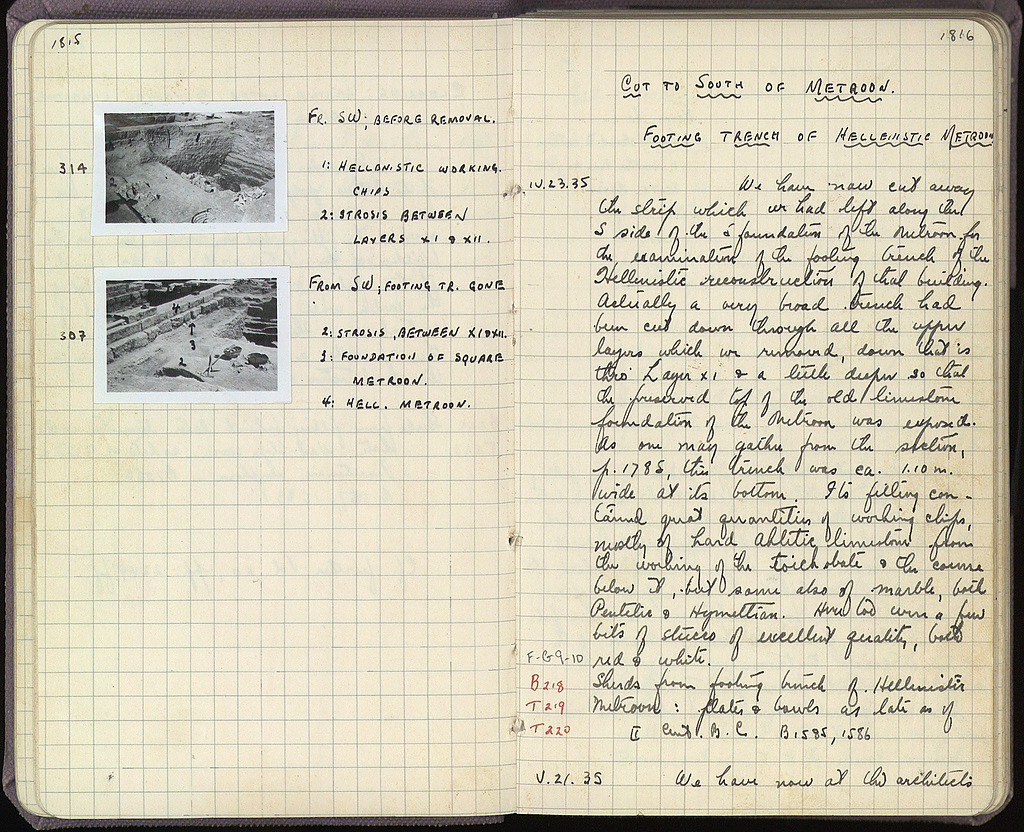 1815
314
FR. SW; BEFORE REMOVAL.
1: HELLENISTIC WORKING
CHIPS
2: STROSIS BETWEEN
LAYERS XI & XII.
307
FROM SW; FOOTING TR. GONE
2: STROSIS, BETWEEN XI & XII.
3: FOUNDATION OF SQUARE
METROON.
4: HELL. METROON.
1816
CUT TO SOUTH OF METROON.
FOOTING TRENCH OF HELLENISTIC METROON
IV.23.35
We have now cut away
the strip which we had left along the
S side of the S foundation of the Metroon for
the examination of the footing trench of the
Hellenistic reconstruction of that building.
Actually a very broad trench had
been cut down through all the upper
layers which we removed, down that is
thro' Layer XI & a little deeper so that
the preserved top of the old limestone
foundation of the Metroon was exposed.
As one may gather from the section,
p. 1785, this trench was ca. 1.10 m.
wide at its bottom. Its filling con-
tained great quantities of working chips,
mostly of hard Akitic limestone from
the working of the toichobate & the course
below it, but some also of marble, both
Pentelic & Hymettian. Here too were a few
bits of stucco of excellent quality, both
F-G 9-10 red & white.
B 218 Sherds from footing trench of Hellenistic
T 219 Metroon: plates & bowls as late as of
T 220 II Cent. B.C. B 1585, 1586
V.21.35 We have now at the architects